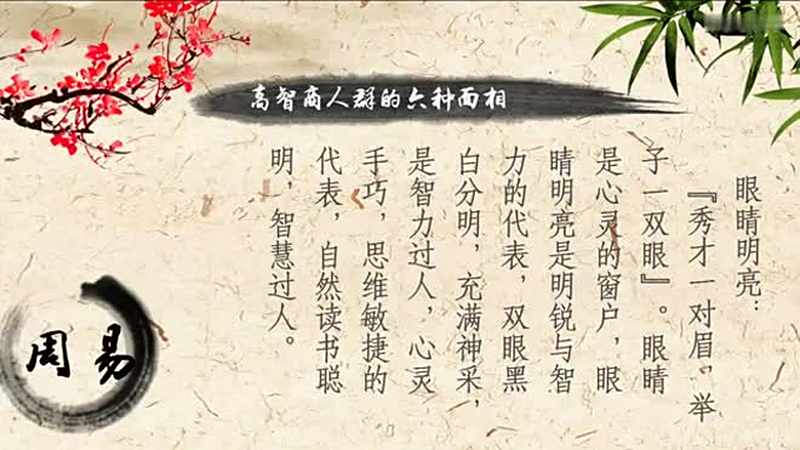 高智商人群的六种面相
眼睛明亮：
『秀才一对眉，举
子一双眼』。眼睛
是心灵的窗户，眼
睛明亮是明锐与智
力的代表，双眼黑
白分明，充满神采，
是智力过人，心灵
手巧，思维敏捷的
代表，自然读书聪
明，智慧过人。
周易